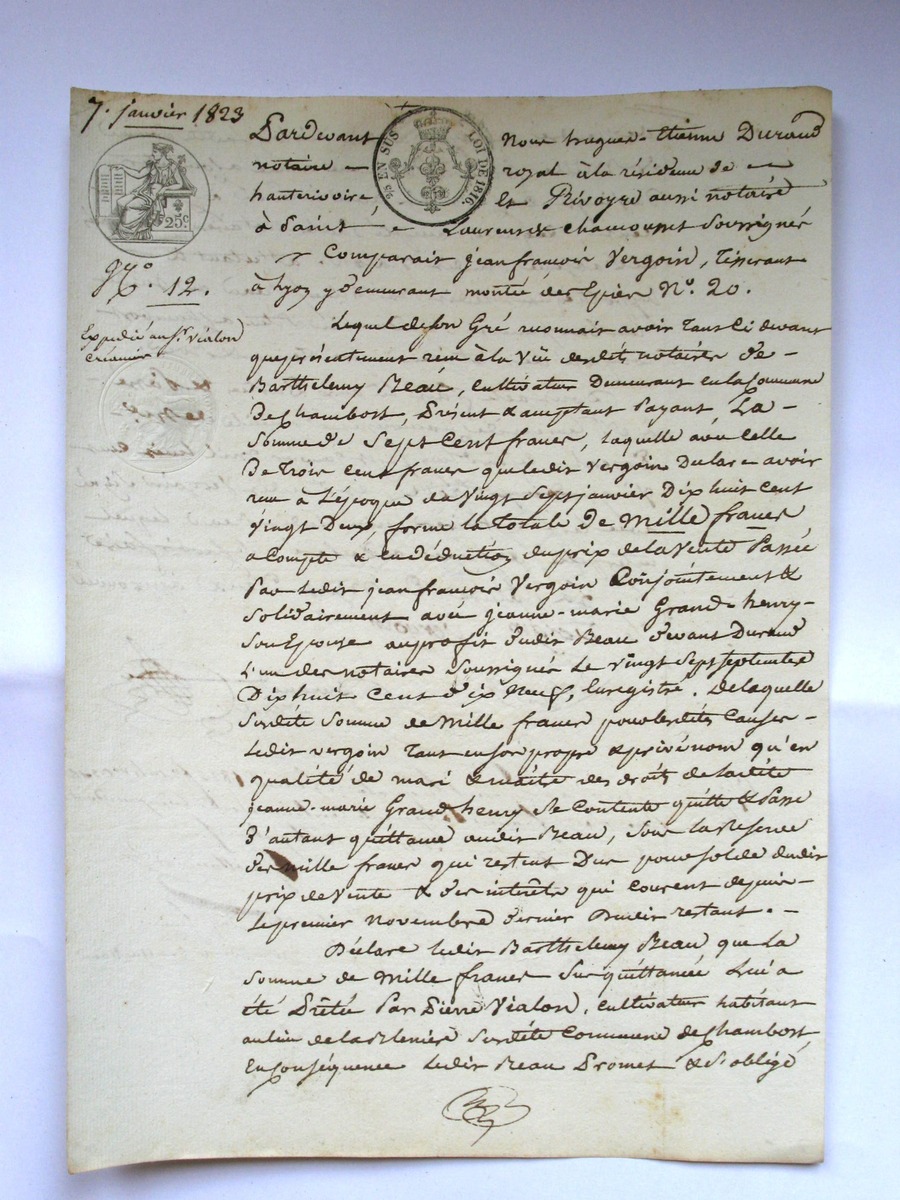 7. janvier 1823
Pardevant Nous hugues-Etienne Durand
notaire - royal à la résidence de -
hauterivoire, Et Prévoyre aussi notaire
à Saint - Laurent de Chamousset Soussignés
Comparait jean françois Vergoin, Tisserant
à Lyon y demeurant montée des Epies N.º 20.
Lequel de son Gré reconnait avoir Tant Ci devant
que présentement reçu à la Vüe desdits notaires de-
Barthelemy Beau, cultivateur Demeurant en la Commune
De Chambost, Présent & acceptant Payant, La-
Somme de Sept Cent francs, laquelle avec Celle
De Trois Cent francs que ledit Vergoin Declare avoir
reçu à L'époque du Vingt Sept janvier Dix huit Cent
Vingt Deux, forme la totale de Mille francs
a Compte & en déduction du prix de la Vente Passée
Par ledit jean françois Vergoin Conjointement &
Solidairement avec jeanne-marie Grand-henry-
Son Epouse au profit dudit Beau devant Durand
L'un des notaires Soussignés Le Vingt Sept Septembre
Dix huit Cent dix Neuf, Enregistré. De laquelle
Susdite Somme de Mille francs pour lesdites Causes-
Ledit vergoin Tant en son propre & privé nom qu'en
qualité de mari & maitre des droits de ladite
jeanne-marie Grand henry Se Contente quitte & Passe
D'autant quittance audit Beau, Sous la Reserve
des Mille francs qui restent Dus pour Solde dudit
prix de Vente & des intérêts qui courent depuis-
Le premier Novembre dernier Dudit restant. -
Déclare ledit Barthelemy Beau que La
Somme de Mille francs Sus quittancée Lui a
été Prêtée Par Pierre Vialon, cultivateur habitant
au lieu de la Susdite Commune de Chambost,
En Conséquence Ledit Beau Promet & S'oblige
25 EN SUS
LOI DE 1816.
25c
Nº. 12.
Expédié au Sr Vialon
Créancier